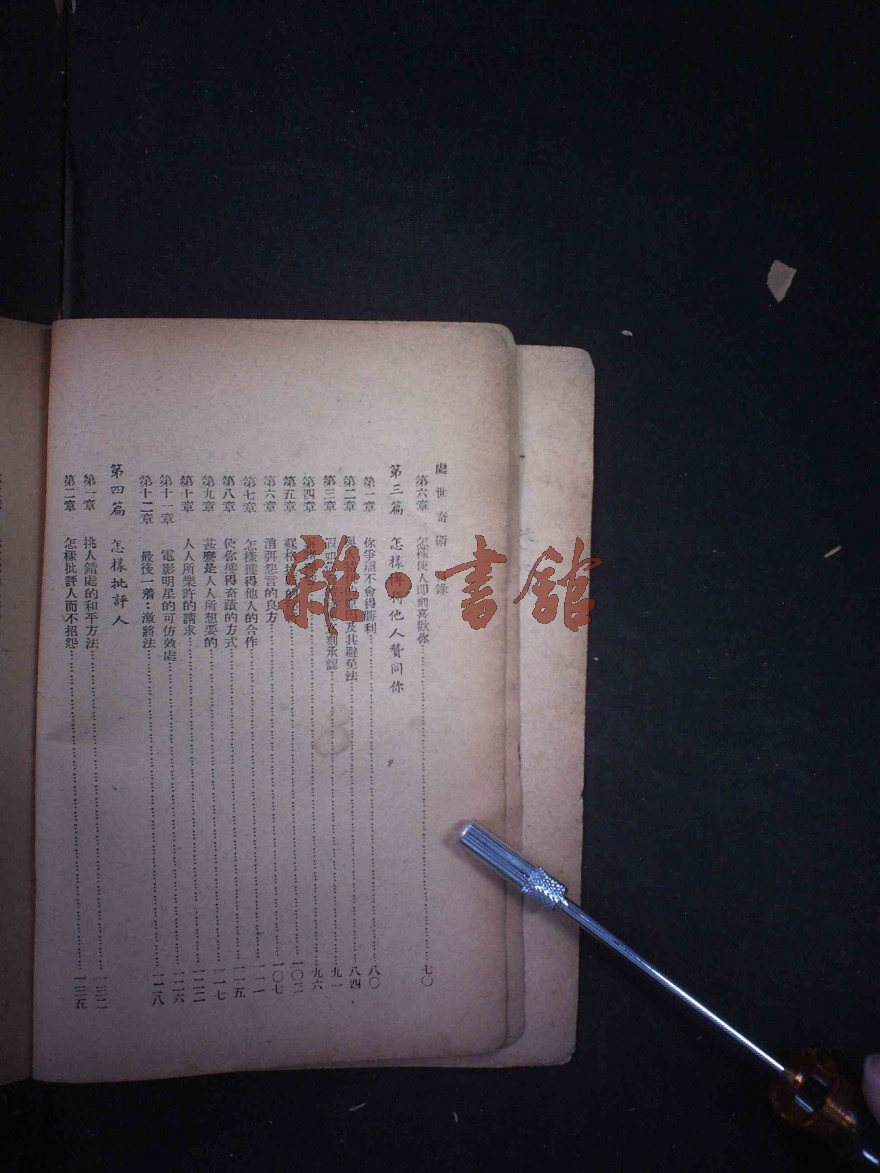 處世奇術 目錄
第六章 怎樣使人即刻喜歡你 七〇
第三篇 怎樣博得他人贊同你
第一章 你爭論不會得勝利 八〇
第二章 及其避免法 八四
第三章 立刻承認 九一
第四章 九六
第五章 蘇格拉底的 一〇三
第六章 消弭怨言的良方 一〇七
第七章 怎樣獲得他人的合作 一一一
第八章 使你獲得奇蹟的方式 一一五
第九章 甚麼是人人所想要的 一一七
第十章 人人所樂許的請求 一二二
第十一章 電影明星的可仿效處 一二六
第十二章 最後一着：激將法 一二八
第四篇 怎樣批評人
第一章 挑人錯處的和平方法 一三二
第二章 怎樣批評人而不招怨 一三五
雜·書館